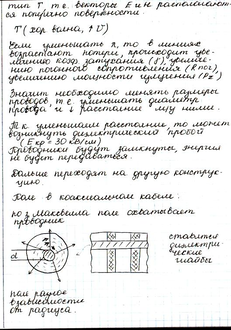 тип Т т.е. векторы E и H располагают-
ся попутно поверхности.
Т (хор. волна, ↑υ)
Если уменьшать λ, то в линиях
возрастают потери, происходит уве-
личение коэф. затухания (γ), увели-
чению погонного сопротивления (R пог),
увеличению мощности излучения (P изл)
Значит необходимо менять размеры
проводов, т.е. уменьшать диаметр
провода и ↓ расстояние между ними.
Т.к. уменьшаем расстоянии, то может
возникнуть диэлектрический пробой
(Eкр = 30 кВ/см)
Проводники будут замкнуты, энергия
не будет передаваться.
Дальше переходят на другую конструк-
цию.
Поле в коаксиальном кабеле:
по з. Максвелла поле охватывает
проводник
ставится
диэлектри-
ческие
шайбы
d
поле разное
в зависимости
от радиуса.